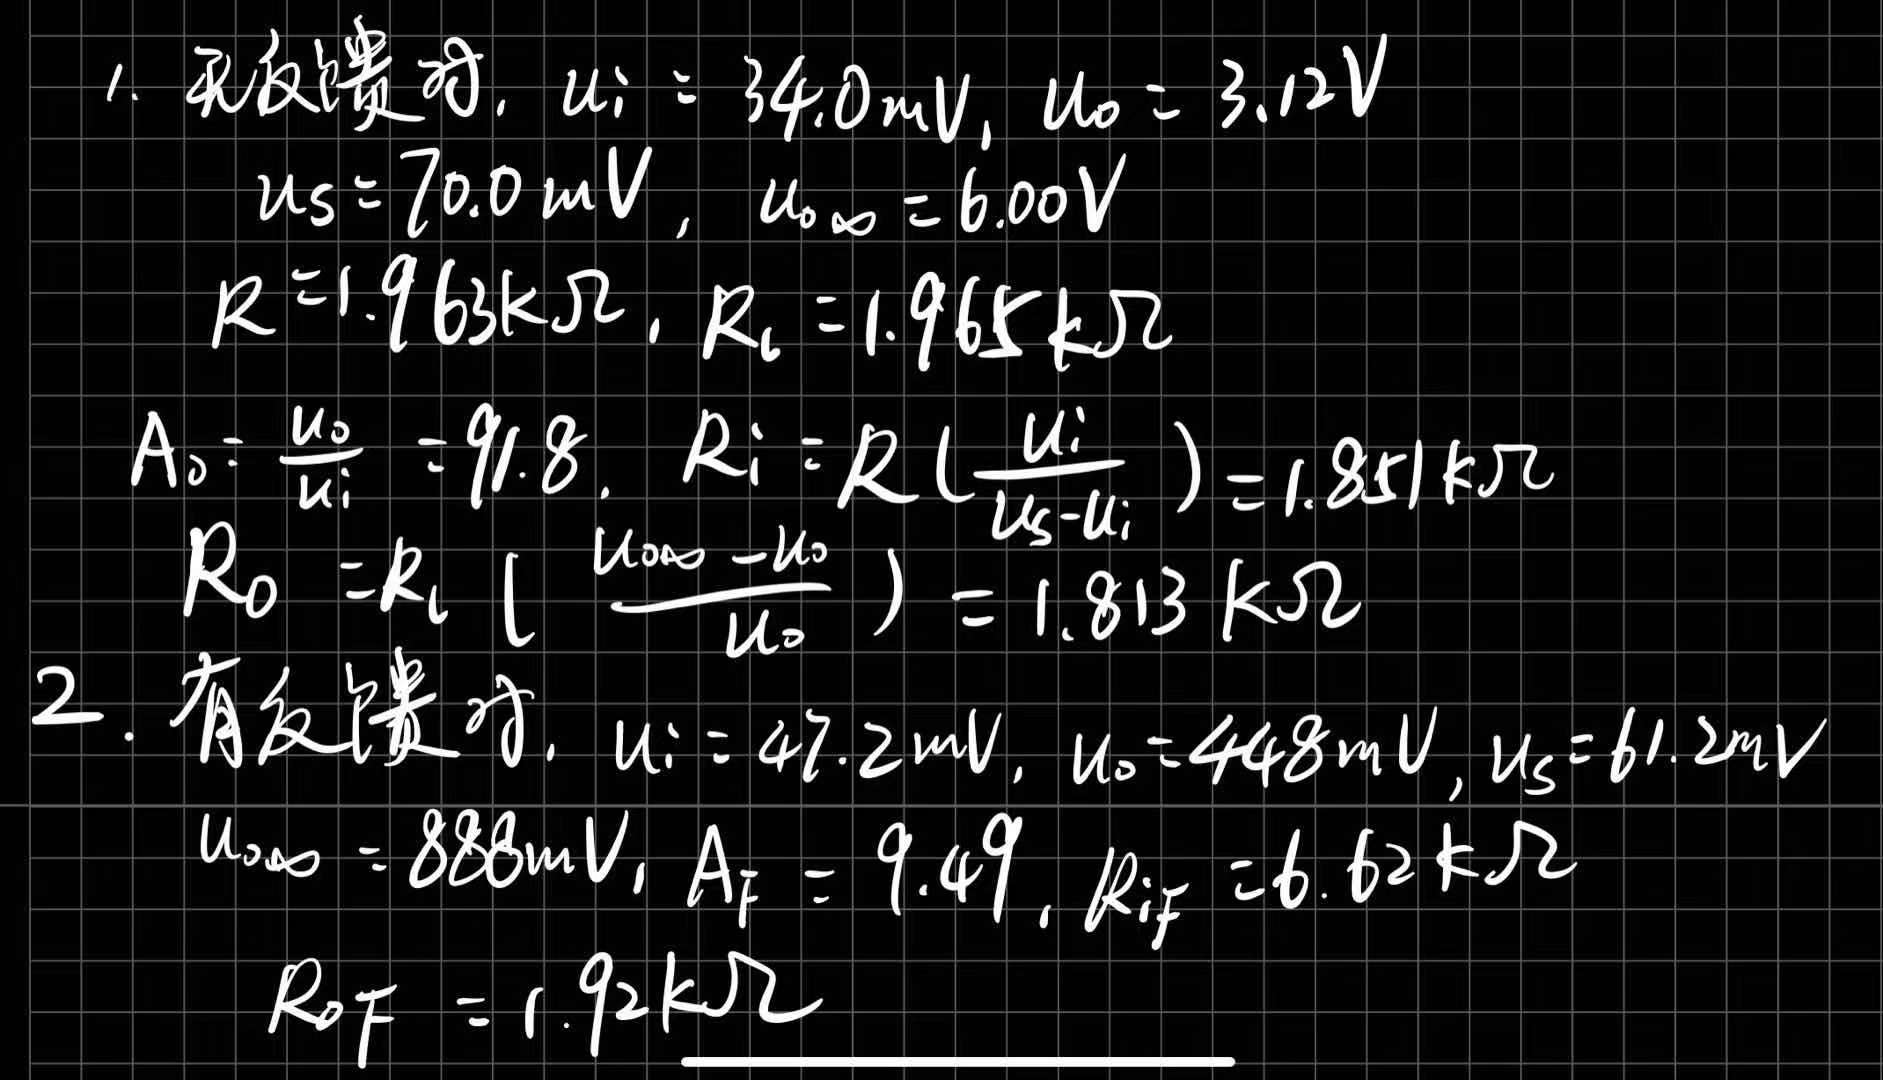 1. 无反馈时, ui = 34.0mV, uo = 3.12V
us = 70.0mV, uo∞ = 6.00V
R = 1.963kΩ, RL = 1.965kΩ
Ao = uo/ui = 91.8, Ri = R(ui/(us-ui)) = 1.851kΩ
Ro = RL((uo∞-uo)/uo) = 1.813kΩ
2. 有反馈时, ui = 47.2mV, uo = 448mV, us = 61.2mV
uo∞ = 888mV, AF = 9.49, RiF = 6.62kΩ
RoF = 1.92kΩ